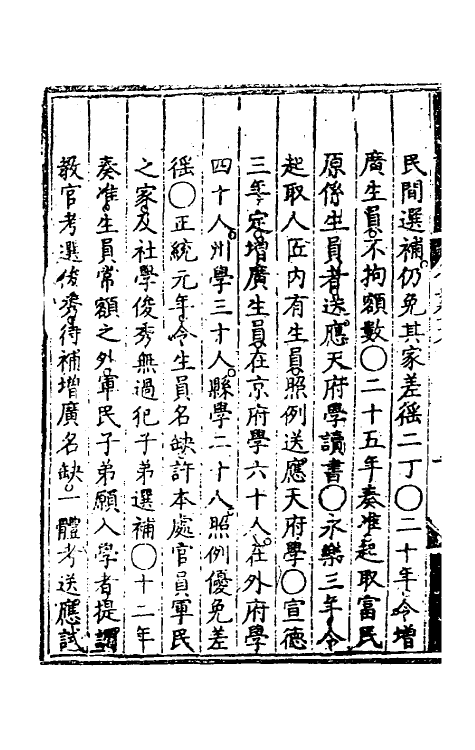 民間選補仍免其家差徭二丁〇二十年令增
廣生員不拘額數〇二十五年奏准起取富民
原係生員者送應天府學讀書〇永樂三年令
起取人匠內有生員照例送應天府學〇宣德
三年定增廣生員在京府學六十人在外府學
四十人州學三十人縣學二十人照例優免差
徭〇正統元年令生員名缺許本處官員軍民
之家及社學俊秀無過犯子弟選補〇十二年
奏准生員常額之外軍民子弟願入學者提調
教官考選俊秀待補增廣名缺一體考送應試